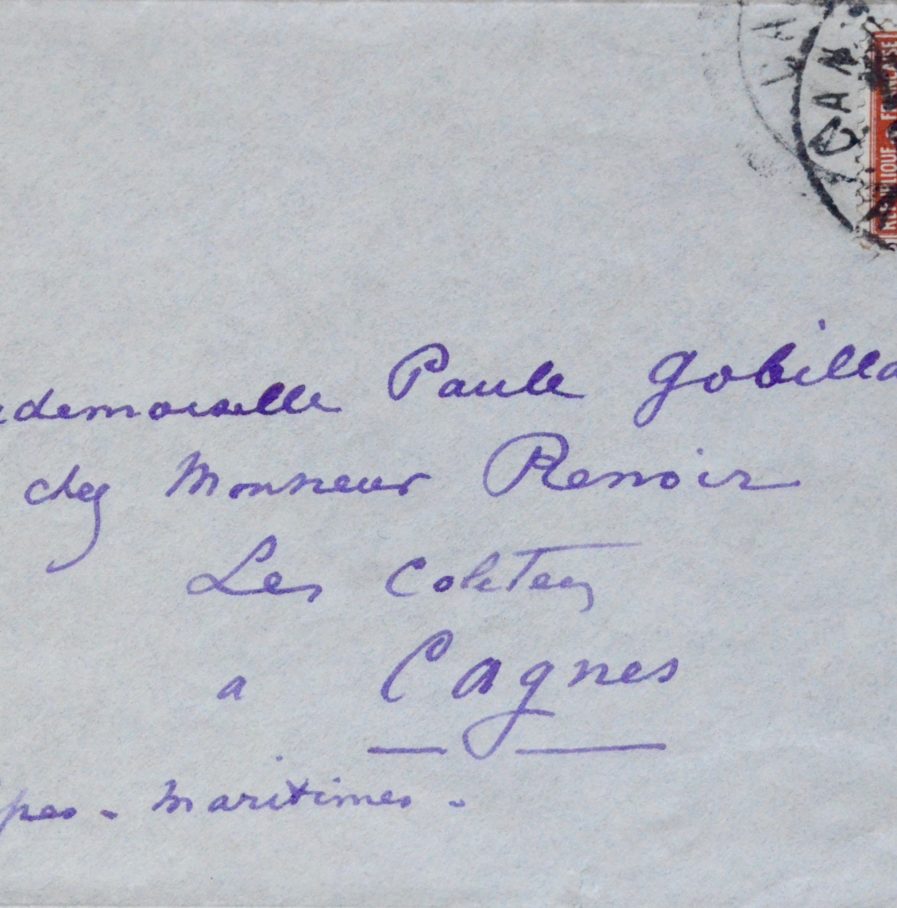 CAN
RÉPUBLIQUE FRANÇAISE
ademoiselle Paule Gobilla
chez Monsieur Renoir
Les Coletes
a Cagnes
lpes - Maritimes -